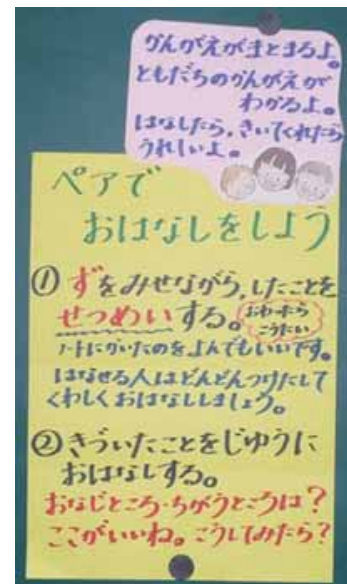 かんがえがまとまるよ。
ともだちのかんがえが
わかるよ。
はなしたら、きいてくれたら
うれしいよ。
ペアで
おはなしをしよう
① ずをみせながら、したことを
せつめいする。
おわったら
こうたい
ノートにかいたのをよんでもいいです。
はなせる人はどんどんつけたして
くわしくおはなししましょう。
② きづいたことをじゆうに
おはなしする。
おなじところ・ちがうところは？
ここがいいね。こうしてみたら？